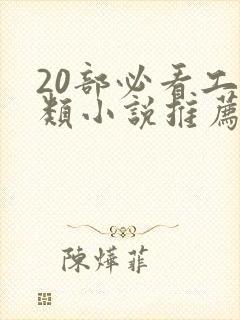 20部必看工
類小說推薦
陳燁菲